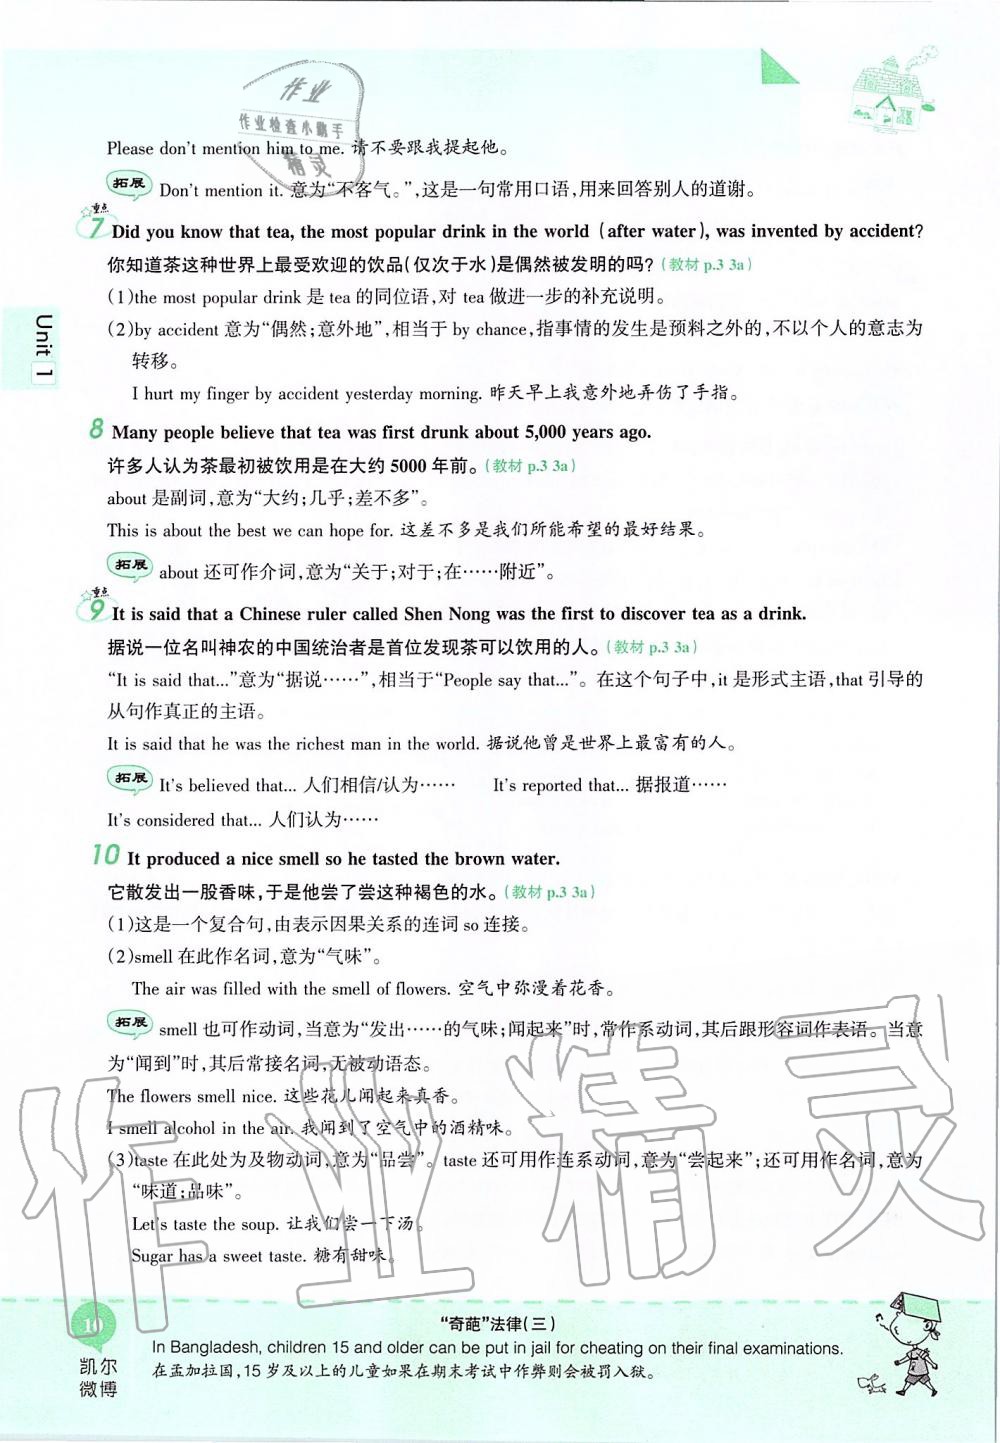 作业
作业检查小助手
精灵
Please don't mention him to me. 请不要跟我提起他。
拓展 Don't mention it. 意为“不客气。”,这是一句常用口语,用来回答别人的道谢。
重点
7 Did you know that tea, the most popular drink in the world (after water), was invented by accident?
你知道茶这种世界上最受欢迎的饮品(仅次于水)是偶然被发明的吗?(教材 p.3 3a)
(1)the most popular drink 是 tea 的同位语,对 tea 做进一步的补充说明。
(2)by accident 意为“偶然;意外地”,相当于 by chance,指事情的发生是预料之外的,不以个人的意志为
转移。
I hurt my finger by accident yesterday morning. 昨天早上我意外地弄伤了手指。
Unit 1
8 Many people believe that tea was first drunk about 5,000 years ago.
许多人认为茶最初被饮用是在大约 5000 年前。(教材 p.3 3a)
about 是副词,意为“大约;几乎;差不多”。
This is about the best we can hope for. 这差不多是我们所能希望的最好结果。
拓展 about 还可作介词,意为“关于;对于;在……附近”。
重点
9 It is said that a Chinese ruler called Shen Nong was the first to discover tea as a drink.
据说一位名叫神农的中国统治者是首位发现茶可以饮用的人。(教材 p.3 3a)
“It is said that...”意为“据说……”,相当于“People say that...”。在这个句子中,it 是形式主语,that 引导的
从句作真正的主语。
It is said that he was the richest man in the world. 据说他曾是世界上最富有的人。
拓展 It's believed that... 人们相信/认为…… It's reported that... 据报道……
It's considered that... 人们认为……
10 It produced a nice smell so he tasted the brown water.
它散发出一股香味,于是他尝了尝这种褐色的水。(教材 p.3 3a)
(1)这是一个复合句,由表示因果关系的连词 so 连接。
(2)smell 在此作名词,意为“气味”。
The air was filled with the smell of flowers. 空气中弥漫着花香。
拓展 smell 也可作动词,当意为“发出……的气味;闻起来”时,常作系动词,其后跟形容词作表语。当意
为“闻到”时,其后常接名词,无被动语态。
The flowers smell nice. 这些花儿闻起来真香。
I smell alcohol in the air. 我闻到了空气中的酒精味。
(3)taste 在此处为及物动词,意为“品尝”。taste 还可用作连系动词,意为“尝起来”;还可用作名词,意为
“味道;品味”。
Let's taste the soup. 让我们尝一下汤。
Sugar has a sweet taste. 糖有甜味。
作业精灵
10
凯尔
微博
“奇葩”法律(三)
In Bangladesh, children 15 and older can be put in jail for cheating on their final examinations.
在孟加拉国,15 岁及以上的儿童如果在期末考试中作弊则会被罚入狱。